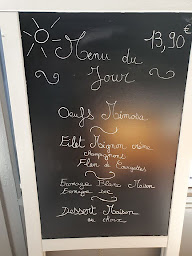 Menu du 13,90€
Jour
Oeufs Mimosa
Filet Mignon crème
champignons
Flan de Courgettes
Fromage Blanc Maison
Fromage sec
Dessert Maison
au choix